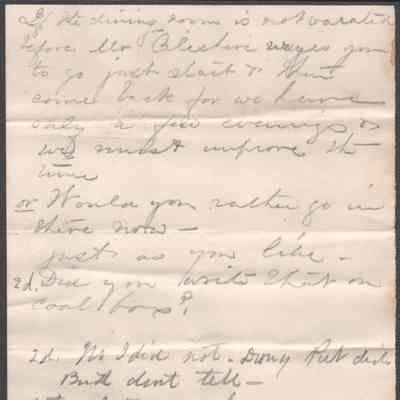 If the dining room is not vacated
before Mr urges you
to go just start & then
come back for we have
only a few evenings &
we must improve the
time
or Would you rather go in
there now —
just as you like —
2d. Did you write that on
coal box?
2d. No I did not - did
But don't tell —